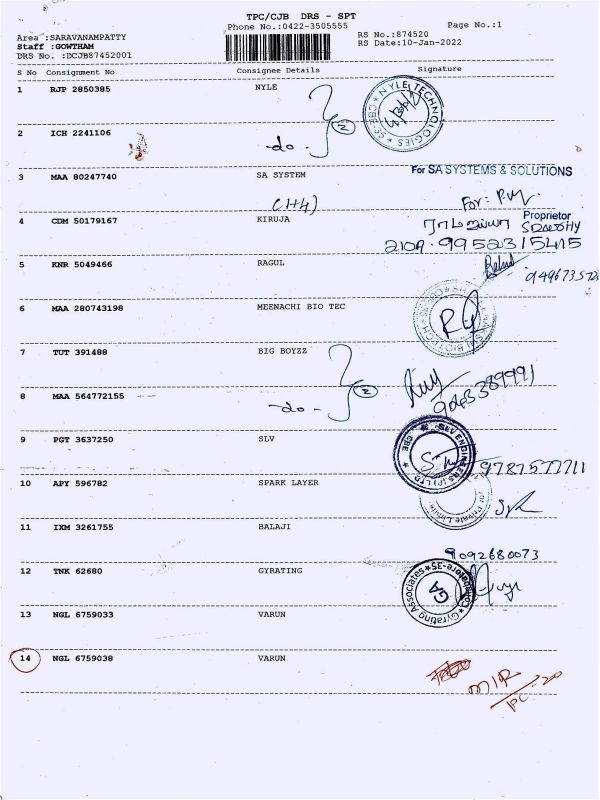 TPC/CJB DRS - SPT
Phone No.:0422-3505555 Page No.:1
Area :SARAVANAMPATTY RS No.:874520
Staff :GOWTHAM RS Date:10-Jan-2022
DRS No. :DCJB87452001
S No Consignment No Consignee Details Signature
1 RJP 2850385 NYLE
NYLE TECHNOLOGIES * CBE
2 ICH 2241106 -do- 2
3 MAA 80247740 SA SYSTEM For SA SYSTEMS & SOLUTIONS
(1+4) For:
Proprietor
4 CDM 50179167 KIRUJA
9952315415
5 KNR 5049466 RAGUL
6 MAA 280743198 MEENACHI BIO TEC
7 TUT 391488 BIG BOYZZ
8 MAA 564772155 -do- 2 9043389991
9 PGT 3637250 SLV
SLV ENGINEERS (P) LTD * CBE
9787577711
10 APY 596782 SPARK LAYER
11 IXM 3261755 BALAJI
9092680073
12 TNK 62680 GYRATING
Gyrating Associates * Coimbatore-35 * GA
13 NGL 6759033 VARUN
14 NGL 6759038 VARUN